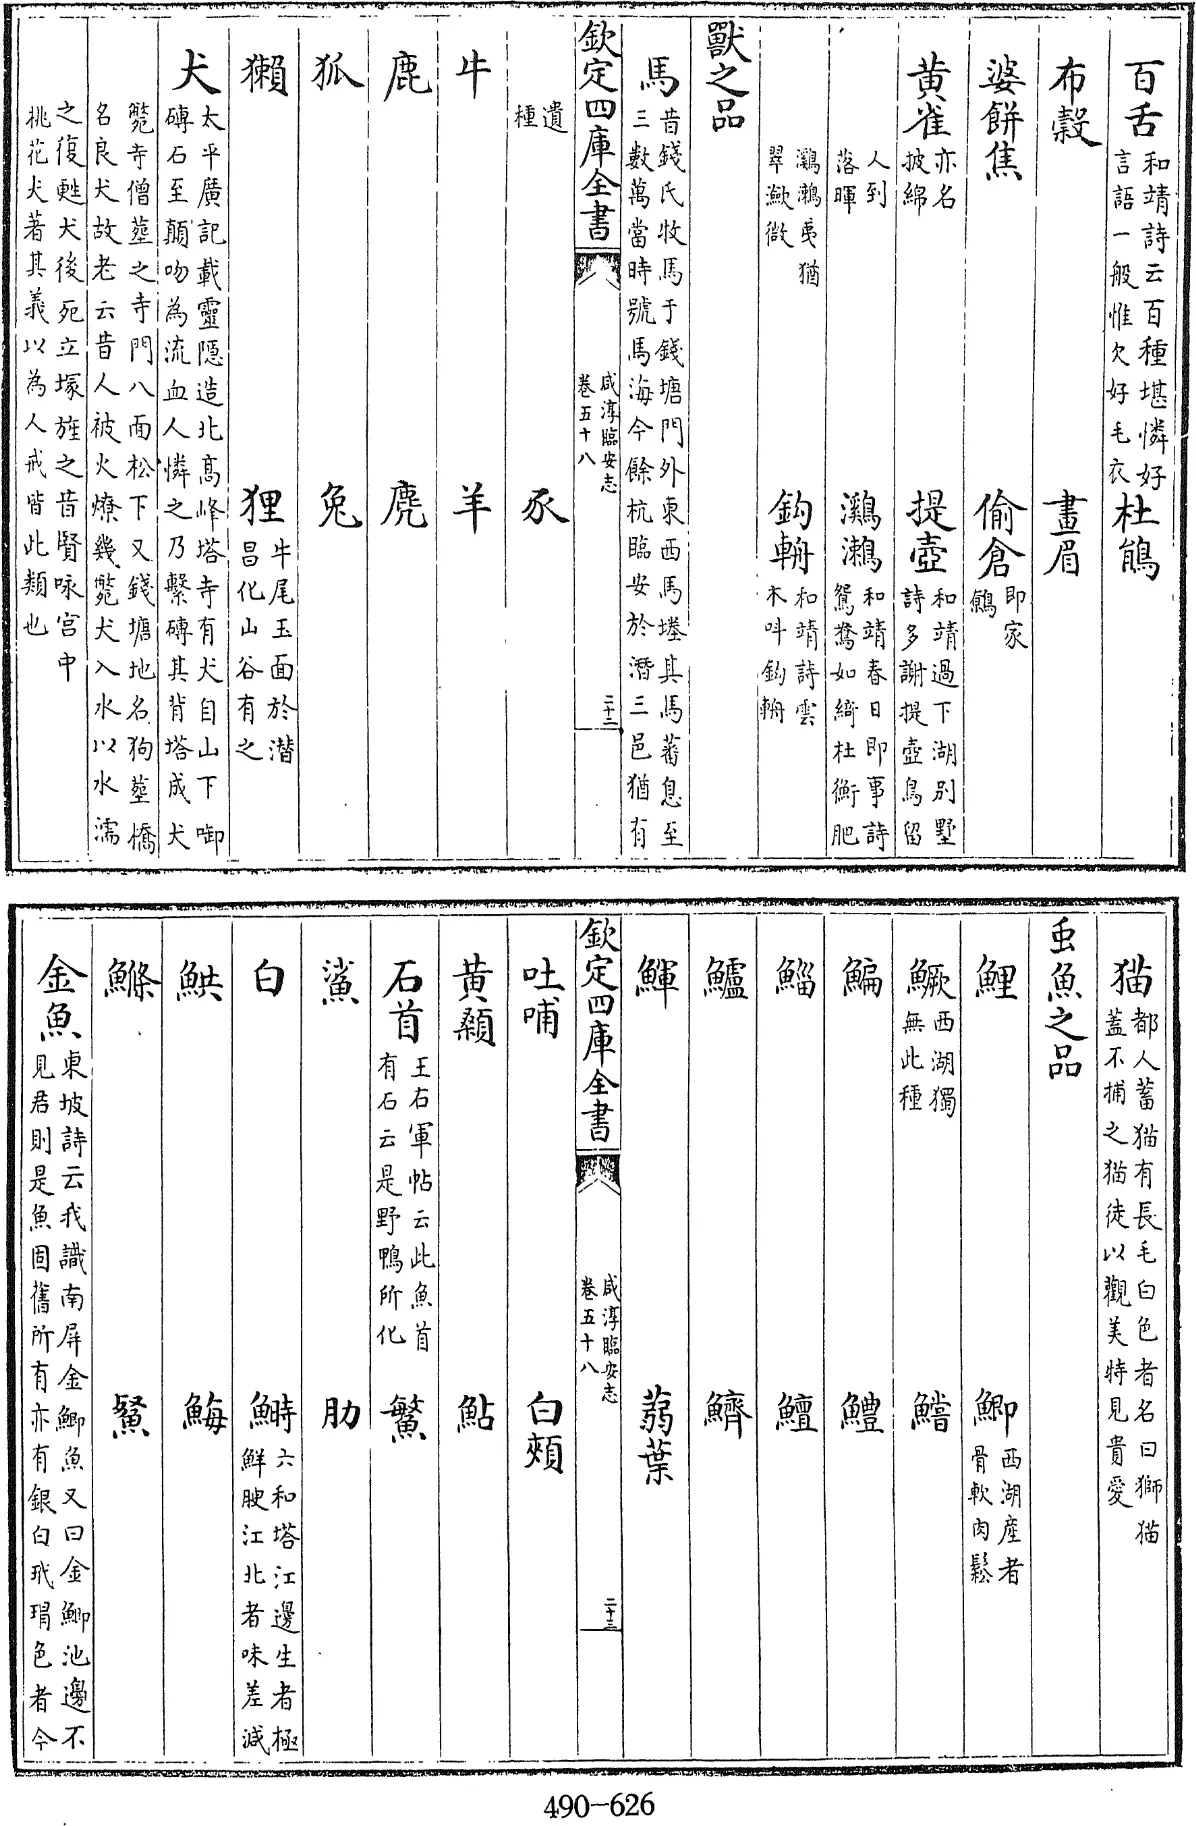 百舌和靖詩云百種堪憐好言語一般惟欠好毛衣　杜鵑
布穀　畫眉
婆餅焦　偷倉即家鵂
黄雀亦名披綿　提壺和靖過下湖別墅詩多謝提壺鳥留
人到落暉　鸂鶒和靖春日即事詩鴛鴦如綺杜蘅肥
鸂鶒夷猶翠瀲微　鈎輈和靖詩雲木呌鈎輈
獸之品
馬昔錢氏牧馬于錢塘門外東西馬塍其馬蕃息至三數萬當時號馬海今餘杭臨安於潛三邑猶有
欽定四庫全書　咸淳臨安志卷五十八　二十二
遺種　豕
牛　羊
鹿　麂
狐　兔
獺　狸牛尾玉面於潛昌化山谷有之
犬太平廣記載靈隱造北髙峰塔寺有犬自山下啣磚石至顛吻為流血人憐之乃繫磚其背塔成犬
斃寺僧塟之寺門八面松下又錢塘地名狗塟橋名良犬故老云昔人被火燎幾斃犬入水以水濡
之復甦犬後死立塚旌之昔賢咏宫中桃花犬著其義以為人戒皆此類也
猫都人蓄猫有長毛白色者名曰獅猫蓋不捕之猫徒以觀美特見貴愛
虫魚之品
鯉　鯽西湖産者骨軟肉鬆
鱖西湖獨無此種　鱨
鯿　鱧
鯔　鱣
鱸　鱭
鯶　蒻葉
欽定四庫全書　咸淳臨安志卷五十八　二十三
吐哺　白頰
黄顙　鮎
石首王右軍帖云此魚首有石云是野鴨所化　鰵
鯊　肋
白　鰣六和塔江邊生者極鮮腴江北者味差減
鯕　鮸
鰷　鮆
金魚東坡詩云我識南屏金鯽魚又曰金鯽池邊不見君則是魚固舊所有亦有銀白玳瑁色者今
490-626